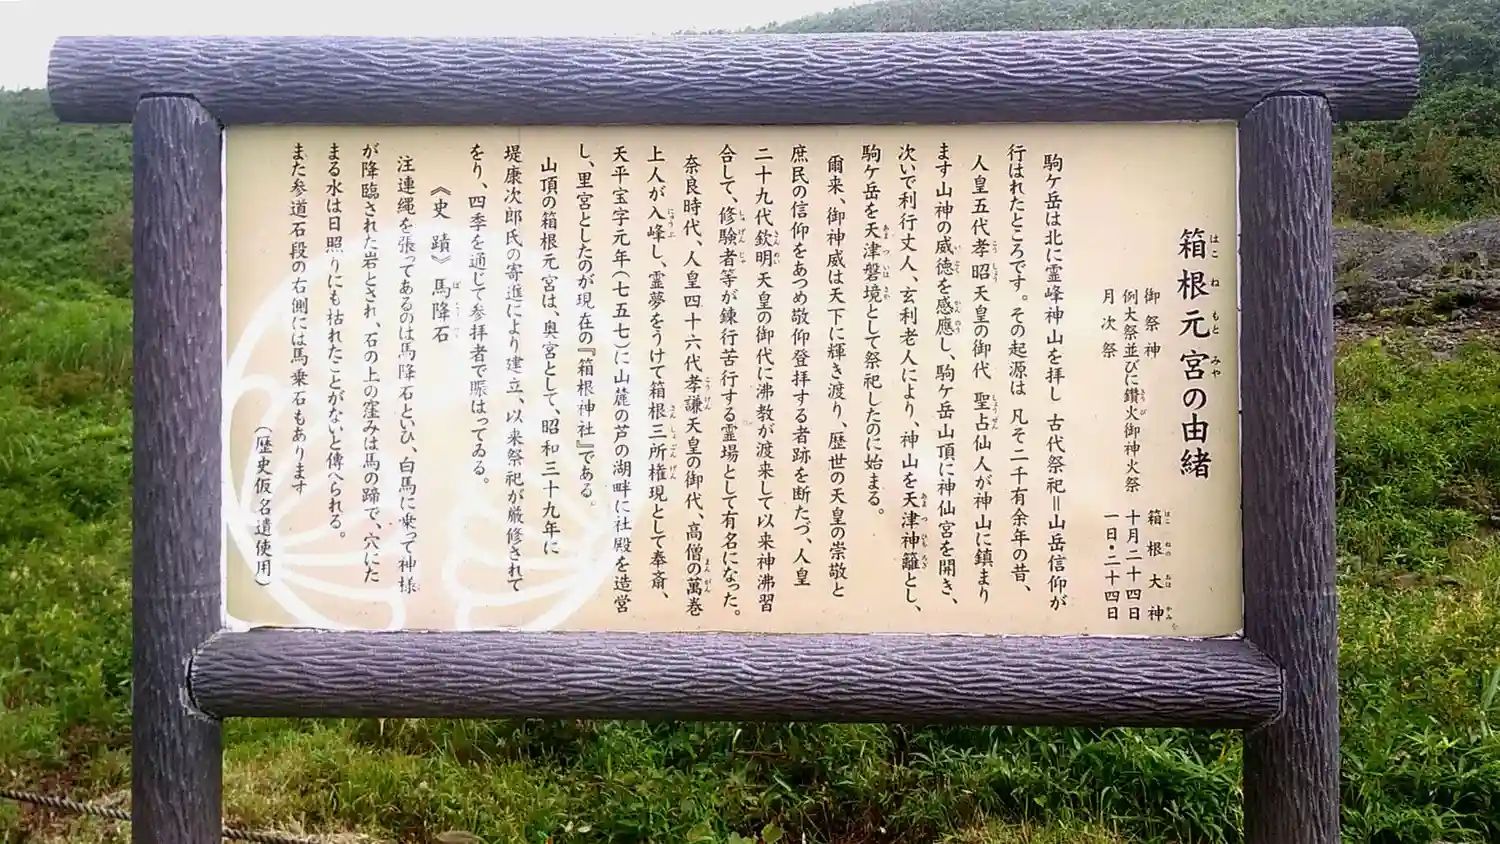 箱根元宮の由緒
御祭神 箱根大神
例大祭並びに鑽火御神火祭 十月二十四日
月次祭 一日・二十四日
駒ケ岳は北に霊峰神山を拝し 古代祭祀＝山岳信仰が
行はれたところです。その起源は 凡そ二千有余年の昔、
人皇五代孝昭天皇の御代 聖占仙人が神山に鎮まり
ます山神の威徳を感應し、駒ケ岳山頂に神仙宮を開き、
次いで利行丈人、玄利老人により、神山を天津神籬とし、
駒ケ岳を天津磐境として祭祀したのに始まる。
爾来、御神威は天下に輝き渡り、歴世の天皇の崇敬と
庶民の信仰をあつめ敬仰登拝する者跡を断たづ、人皇
二十九代欽明天皇の御代に沸教が渡来して以来神沸習
合して、修験者等が錬行苦行する霊場として有名になった。
奈良時代、人皇四十六代孝謙天皇の御代、高僧の萬巻
上人が入峰し、霊夢をうけて箱根三所権現として奉斎、
天平宝字元年（七五七）に山麓の芦の湖畔に社殿を造営
し、里宮としたのが現在の『箱根神社』である。
山頂の箱根元宮は、奥宮として、昭和三十九年に
堤康次郎氏の寄進により建立、以来祭祀が厳修されて
をり、四季を通じて参拝者で賑はってゐる。
《史蹟》馬降石
注連縄を張ってあるのは馬降石といひ、白馬に乗って神様
が降臨された岩とされ、石の上の窪みは馬の蹄で、穴にた
まる水は日照りにも枯れたことがないと傳へられる。
また参道石段の右側には馬乗石もあります
（歴史仮名遣使用）